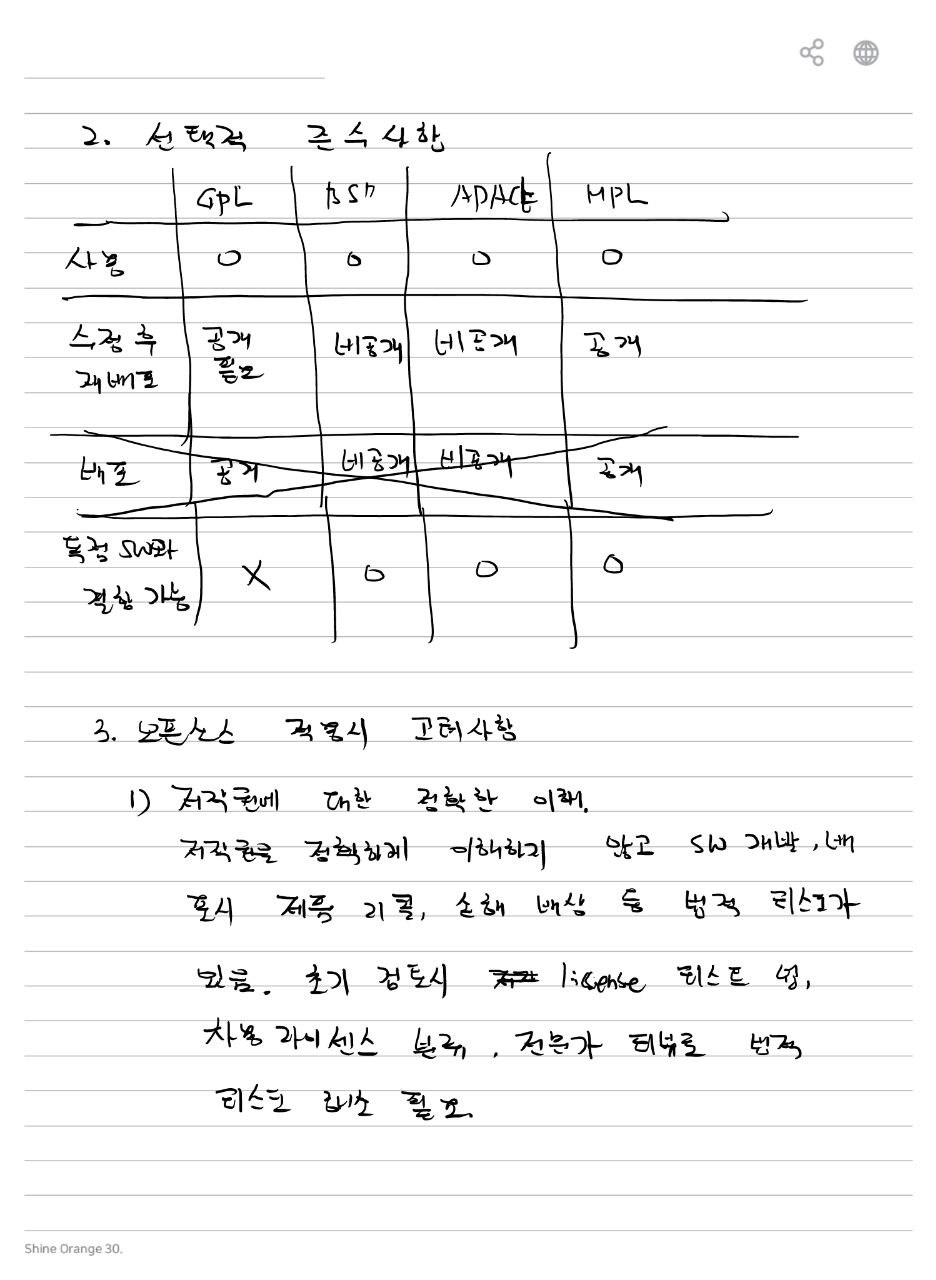 2. 선택적 준수사항
GPL BSD APACHE MPL
사용 O O O O
수정 후 공개 비공개 비공개 공개
재배포 필요
배포 공개 비공개 비공개 공개
독점 SW와
결합 가능 X O O O
3. 오픈소스 적용시 고려사항
1) 저작권에 대한 정확한 이해.
저작권을 정확하게 이해하지 않고 SW 개발, 배
포시 제품 리콜, 손해 배상 등 법적 리스크가
있음. 초기 검토시 lisense 리스트 및,
사용 라이센스 분류, 전문가 리뷰로 법적
리스크 해소 필요.
Shine Orange 30.